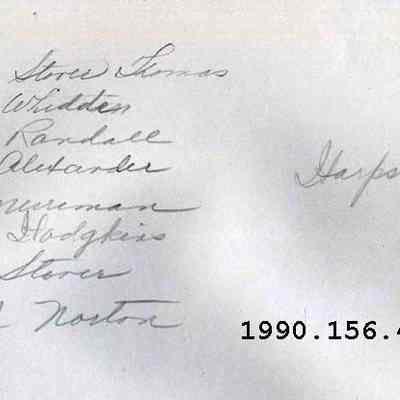 Stover Thomas
Whidden
Randall
Alexander
Merriman
Hodgkins
Stover
Norton
Harps
1990.156.4